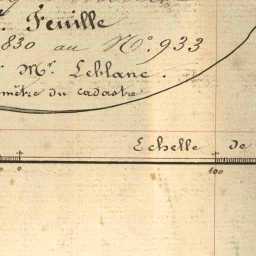 Feuille
830 au N.° 933
Mr. Leblanc.
mètre du cadastre
Echelle de
0 100